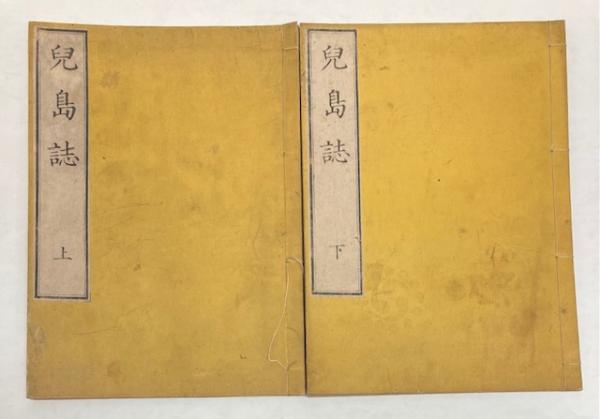 兒島誌
上
兒島誌
下